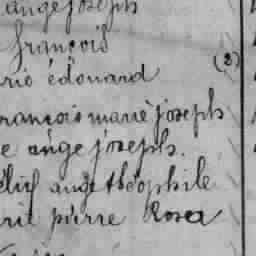 ange joseph
françois
rie édouard (2)
rancois marie joseph
e ange joseph.
élix ange théophile
rie pierre Rosea